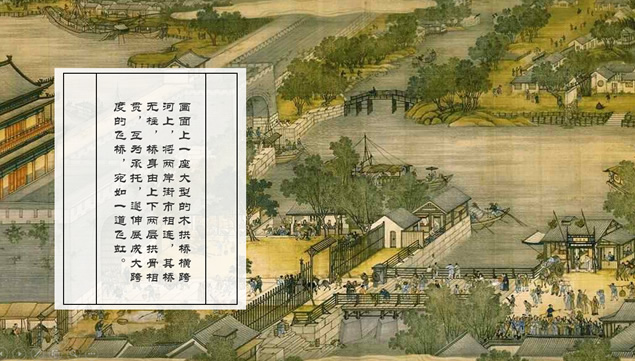 画面上一座大型的木拱桥横跨
河上，将两岸街市相连，其桥
无柱，桥身由上下两层拱骨相
贯，互为承托，逐伸展成大跨
度的飞桥，宛如一道飞虹。